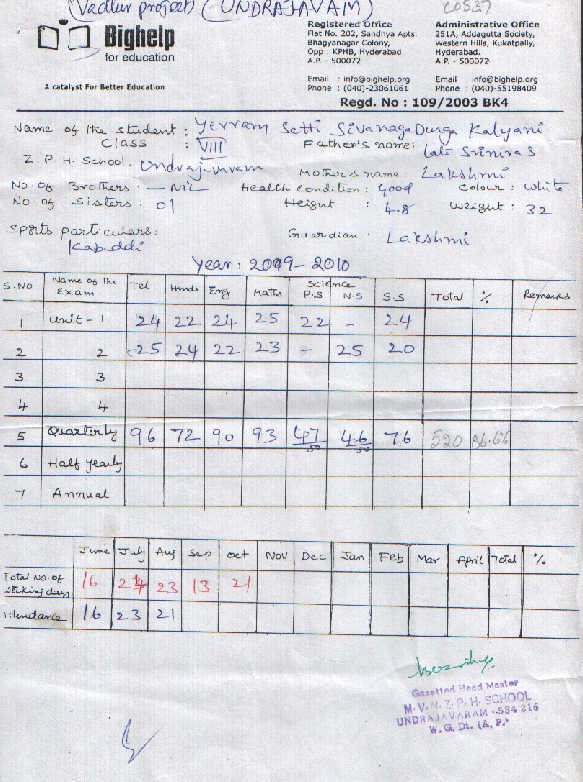 (Vadlur project) (UNDRAJAVAM)
Bighelp
for education
A catalyst For Better Education
Registered Office
Flat No. 202, Sandhya Apts.
Bhagyanagar Colony,
Opp : KPHB, Hyderabad
A.P. - 500072
Email : info@bighelp.org
Phone : (040)-23061061
Administrative Office
251A, Addagutta Society,
western Hills, Kukatpally,
Hyderabad.
A.P. - 500072
Email : info@bighelp.org
Phone : (040)-55198409
Regd. No : 109/2003 BK4
Name of the student : Yerram Setti Sivanaga Durga Kalyani
Class : VIII Father's name : Late Srinivas
Z P H School. Undrajavaram Mother's name Lakshmi
No of Brothers : - NIL Health condition : good Colour : white
No of Sisters : 01 Height : 4.8 Weight : 32
Sports particulars : Guardian : Lakshmi
Kabaddi
Year : 2009-2010
S.NO Name of the Exam Tel Hindi Eng Maths Science P.S N.S S.S Total % Remarks
1 Unit-1 24 22 24 25 22 - 24
2 2 25 24 22 23 - 25 20
3 3
4 4
5 Quarterly 96 72 90 93 47/50 46/50 76 520 86.6%
6 Half yearly
7 Annual
June July Aug Sep Oct Nov Dec Jan Feb Mar April Total %
Total No. of working days 16 24 23 13 21
Attendance 16 23 21
Gazetted Head Master
M.V.N.Z.P.H. SCHOOL
UNDRAJAVARAM-534 216
W.G. Dt. (A.P.)